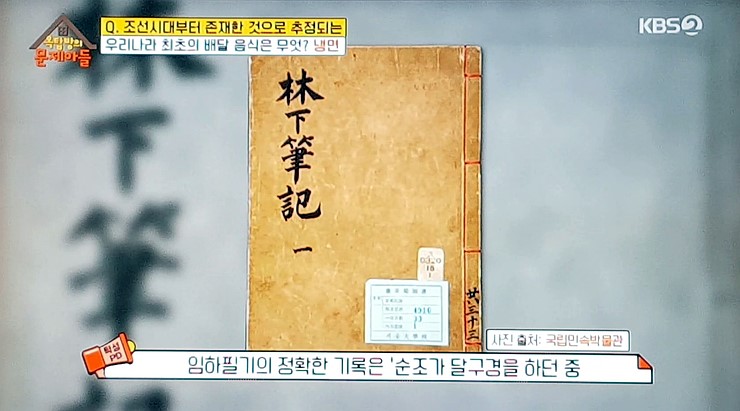 옥탑방의
문제아들
Q. 조선시대부터 존재한 것으로 추정되는
우리나라 최초의 배달 음식은 무엇? 냉면
KBS2
林下筆記 一
0320
18
1
4916
33
1
卄·三十三
사진 출처: 국립민속박물관
탁성
PD
임하필기의 정확한 기록은 '순조가 달구경을 하던 중